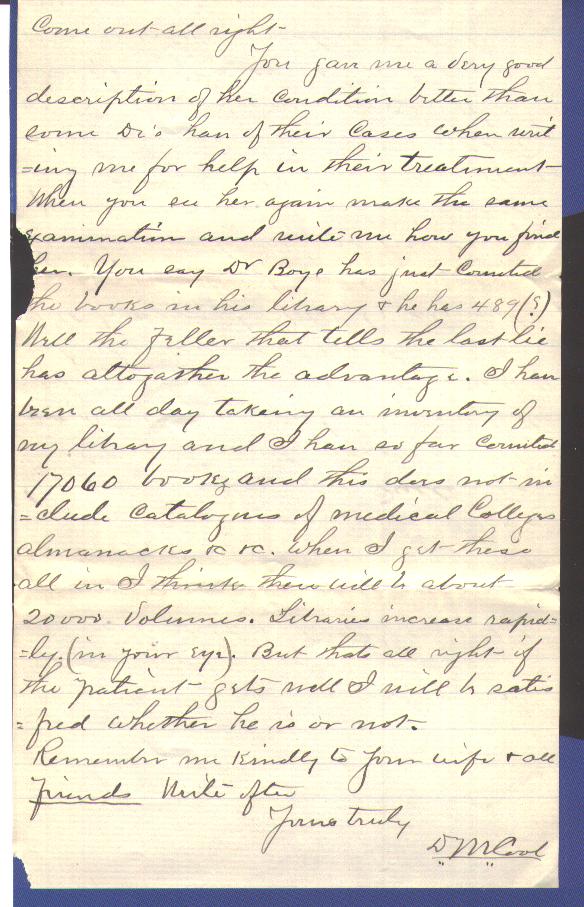 Come out all right-
You gave me a very good
description of her condition better than
some Dr's han of their cases when writ
=ing me for help in their treatment-
When you see her again make the same
examination and write me how you find
her. You say Dr Boye has just counted
the books in his library & he has 489(?)
Well the feller that tells the last lie
has altogather the advantage. I han
been all day taking an inventory of
my library and I han so far counted
17060 books and this does not in
=clude Catalogues of medical Colleges
almanacks &c &c. When I get these
all in I think there will be about
20000 Volumes. Libraries increase rapid=
=ly. (in your eye). But thats all right if
the patient gets well I will be satis
=fied whether he is or not.
Remember me kindly to your wife & all
friends Write often
Yours truly
D McCool